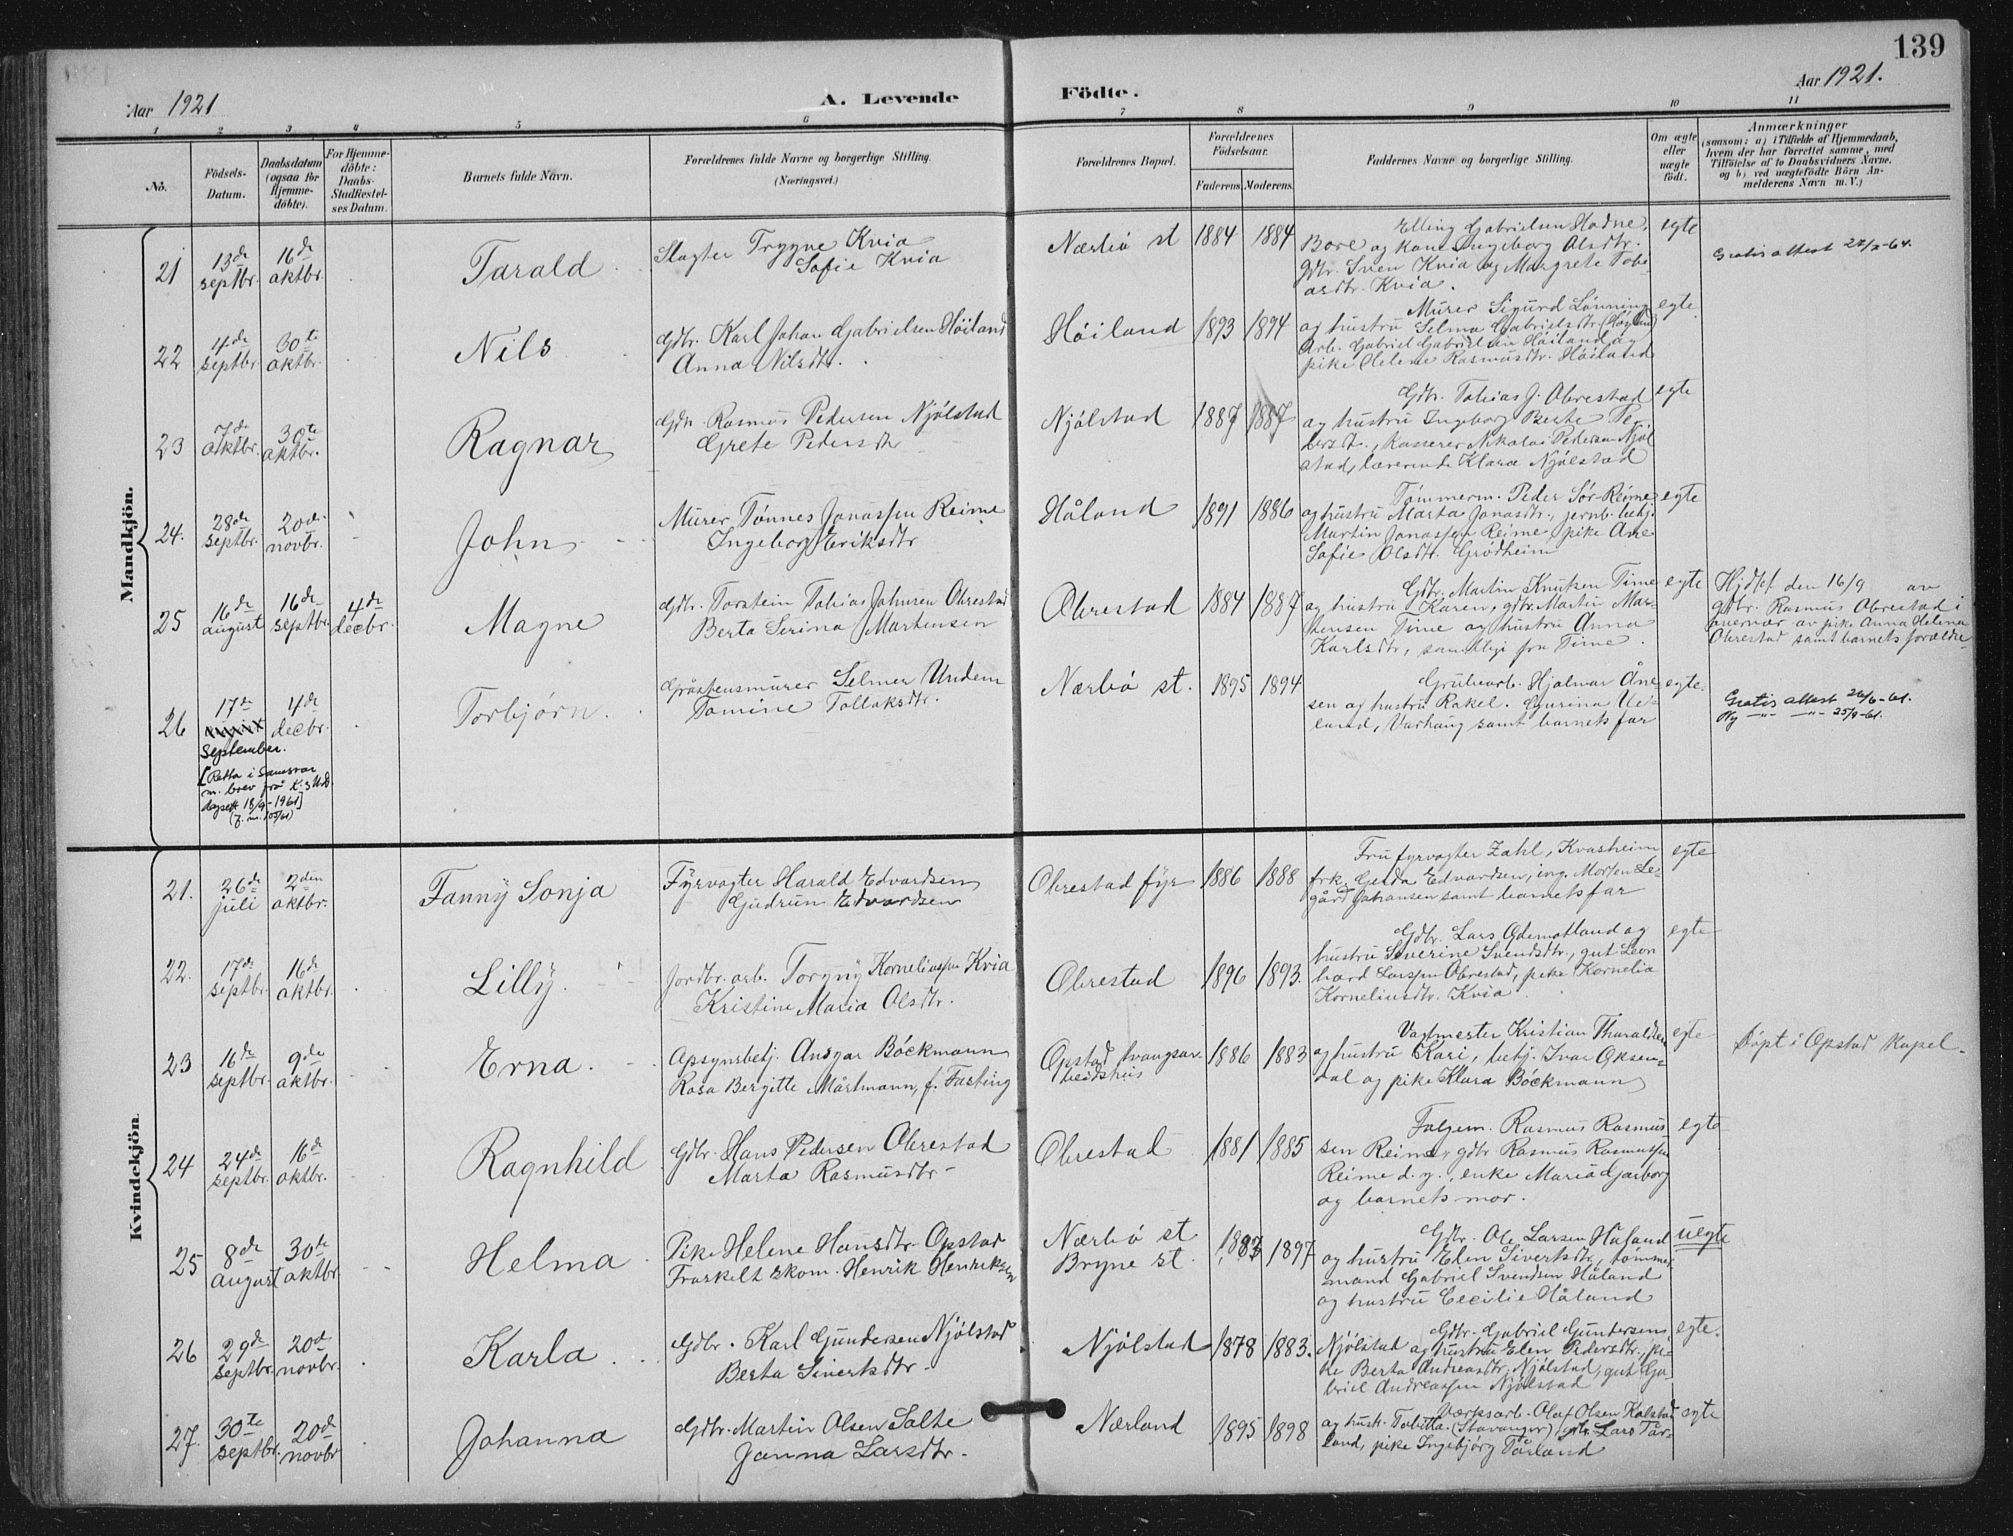 139
Aar 1921
A. Levende
Födte.
Aar 1921.
1 2 3 4 5 6 7 8 9 10 11
No.
Födsels-
Datum.
Daabsdatum
(ogsaa for
Hjemme-
döbte).
For Hjemme-
döbte:
Daabs-
Stadfæstel-
ses Datum.
Barnets fulde Navn.
Forældrenes fulde Navne og borgerlige Stilling.
(Næringsvei.)
Forældrenes Bopæl.
Forældrenes
Födselsaar.
Faderens. Moderens.
Faddernes Navne og borgerlige Stilling.
Om ægte
eller
uægte
födt.
Anmærkninger
(saasom: a) i Tilfælde af Hjemmedaab,
hvem der har forrettet samme, med
Tilföielse af to Daabsvidners Navne,
og b) ved uægtefödte Börn An-
melderens Navn m. V.)
Mandkjön.
21 13de septbr. 16de aktbr. Tarald
Slagter Trygve Kvia
Sofie Kvia
Nærbö st 1884 1884
Elling Gabrielsen Hodne,
Bore og kone Ingeborg Olsdtr.
Gdbr. Sven Kvia og Margrete Tobi-
asdtr. Kvia.
egte
Gratis attest
22 4de septbr. 30te aktbr. Nils
Gdbr. Karl Johan Gabrielsen Höiland
Anna Nilsdtr.
Höiland 1893 1894
Murer Sigurd Lönning
og hustru Selma Gabrielsdtr.
Arb. Gabriel Gabrielsen Höiland og
pike Helene Rasmusdtr. Höiland
egte
23 7de aktbr. 30te aktbr. Ragnar
Gdbr. Rasmus Pedersen Njölstad
Grete Pedersdtr
Njölstad 1887 1887
Gdbr. Tobias J. Obrestad
og hustru Ingeborg
Kasserer Nikolai Pedersen Njöl
stad, lærerinde Klara Njölstad
egte
24. 28de septbr. 20de novbr. John
Murer Tönnes Jonassen Reime
Ingeborg Eriksdtr
Håland 1891 1886
Tömmerm. Peder Sör-Reime
og hustru Marta Jonasdtr., jernb. betj.
Martin Jonassen Reime, pike Ane
Sofie Olsdtr. Grödheim
egte
25 16de august 16de septbr. 4de decbr. Magne
Gdbr. Torstein Tobias Johnsen Obrestad
Berta Serina Martensen
Obrestad 1884 1887
Gdbr. Martin Knutsen Time
og hustru Karen, gdbr. Martin Mar-
tensen Time og hustru Anna
Karlsdtr, samtlige fra Time.
egte
Hjdpt den 16/9 av
gdbr. Rasmus Obrestad i
nærvær av pike Anna Helena
Obrestad samt barnets forældre
26 17de september. 4de decbr. Torbjörn.
Gråstensmurer Selmer Undem
Tomine Tollaksdtr.
Nærbö st. 1895 1894
Grubearb. Hjalmar Åne-
sen og hustru Rakel. Gurina Ue-
land, Varhaug samt barnets far
egte.
Gratis attest 26/6-61.
Ny -"- -"- 25/9-61.
[Retta i samsvar
m. brev frå K. & Und.
dagsett 18/9-1961]
Kvindekjön
21. 26de juli 2den aktbr. Fanny Sonja
Fyrvogter Harald Edvardsen
Gudrun Edvardsen
Obrestad fyr 1886 1888
Fru fyrvogter Zahl, Kvasheim
frk. Gerda Edvardsen, ing. Morten Le-
gård Johansen samt barnets far
egte
22. 17de septbr. 16de aktbr. Lilly.
Jordbr. arb. Torgny Korneliussen Kvia
Kristine Maria Olsdtr.
Obrestad 1896 1893.
Gdbr. Lars Ødemotland og
hustru Severine Svendsdtr., gut Leon
hard Larssen Obrestad, pike Kornelia
Korneliusdtr. Kvia.
egte
23 16de septbr. 9de aktbr. Erna.
Opsynsbetj. Ansgar Böckmann
Rosa Bergitte Mårtmann, f. Fasting
Opstad tvangsar-
beidshus
1886 1883
Vagtmester Kristian Tharaldsen
og hustru Kari, betj. Ivar Oksen-
dal og pike Klara Böckmann
egte
Döpt i Opstad kapel.
24 24de septbr. 16de aktbr. Ragnhild
Gdbr. Hans Pedersen Obrestad
Marta Rasmusdtr
Obrestad 1881 1885
Folgem. Rasmus Rasmus
sen Reime, gdbr Rasmus Rasmussen
Reime d. y., enke Maria Garborg
og barnets mor.
egte
25 8de august 30te aktbr. Helma
Pike Helene Hansdtr. Opstad
Fraskelt skom. Henrik Henriksen
Nærbö st
Bryne st.
1883 1897
Gdbr. Ole Larsen Håland
og hustru Elen Sivertsdtr., tömmer
mand Gabriel Svendsen Håland
og hustru Cecilie Håland
uegte
26 29de septbr. 20de novbr. Karla
Gdbr. Karl Gundersen Njölstad
Berta Sivertsdtr
Njölstad 1878 1883.
Gdbr. Gabriel Guntersens
Njölstad og hustru Elen Pedersdtr., pi-
ke Berta Andreasdtr. Njölstad, gut Ga-
briel Andreassen Njölstad
egte.
27. 30te septbr. 20de novbr Johanna
Gdbr. Martin Olsen Salte
Janna Larsdtr.
Nærland 1895 1898
Værksarb. Olaf Olsen Kalstad
og hustr. Tabitta (Stavanger) gdbr. Lars Tår-
land, pike Ingebjörg Tårland
egte